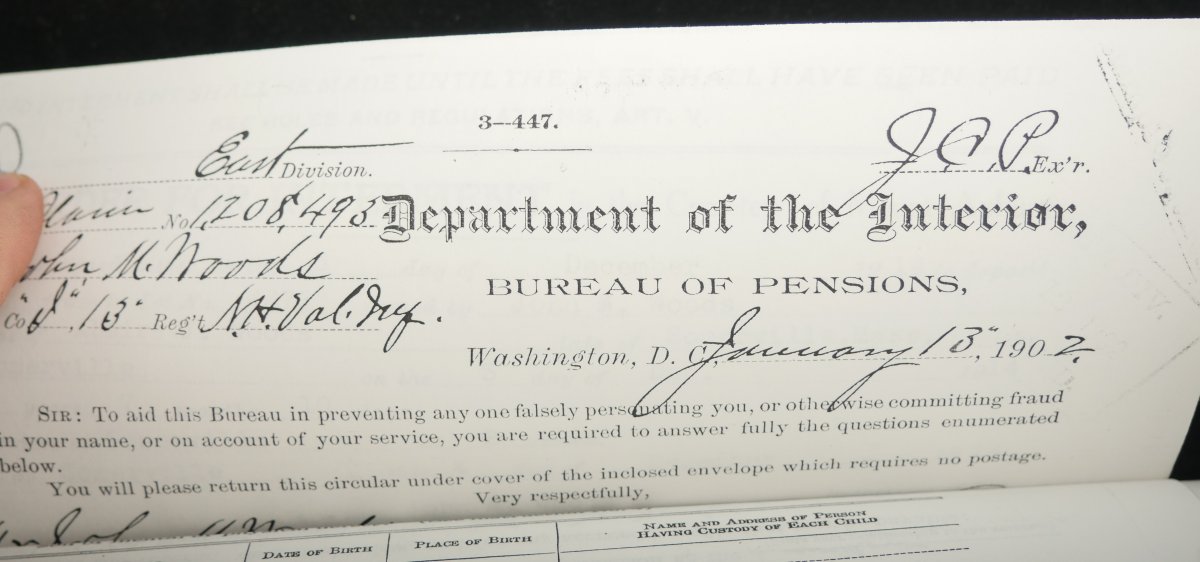 3—447.
East Division.
J. C. P. Ex'r.
No. 1,208,493
Department of the Interior,
John M. Woods
BUREAU OF PENSIONS,
Co "I", 13" Reg't N.H. Vol. Inf.
Washington, D. C., January 13", 1902.
SIR: To aid this Bureau in preventing any one falsely personating you, or otherwise committing fraud
in your name, or on account of your service, you are required to answer fully the questions enumerated
below.
You will please return this circular under cover of the inclosed envelope which requires no postage.
Very respectfully,
DATE OF BIRTH
PLACE OF BIRTH
NAME AND ADDRESS OF PERSON
HAVING CUSTODY OF EACH CHILD